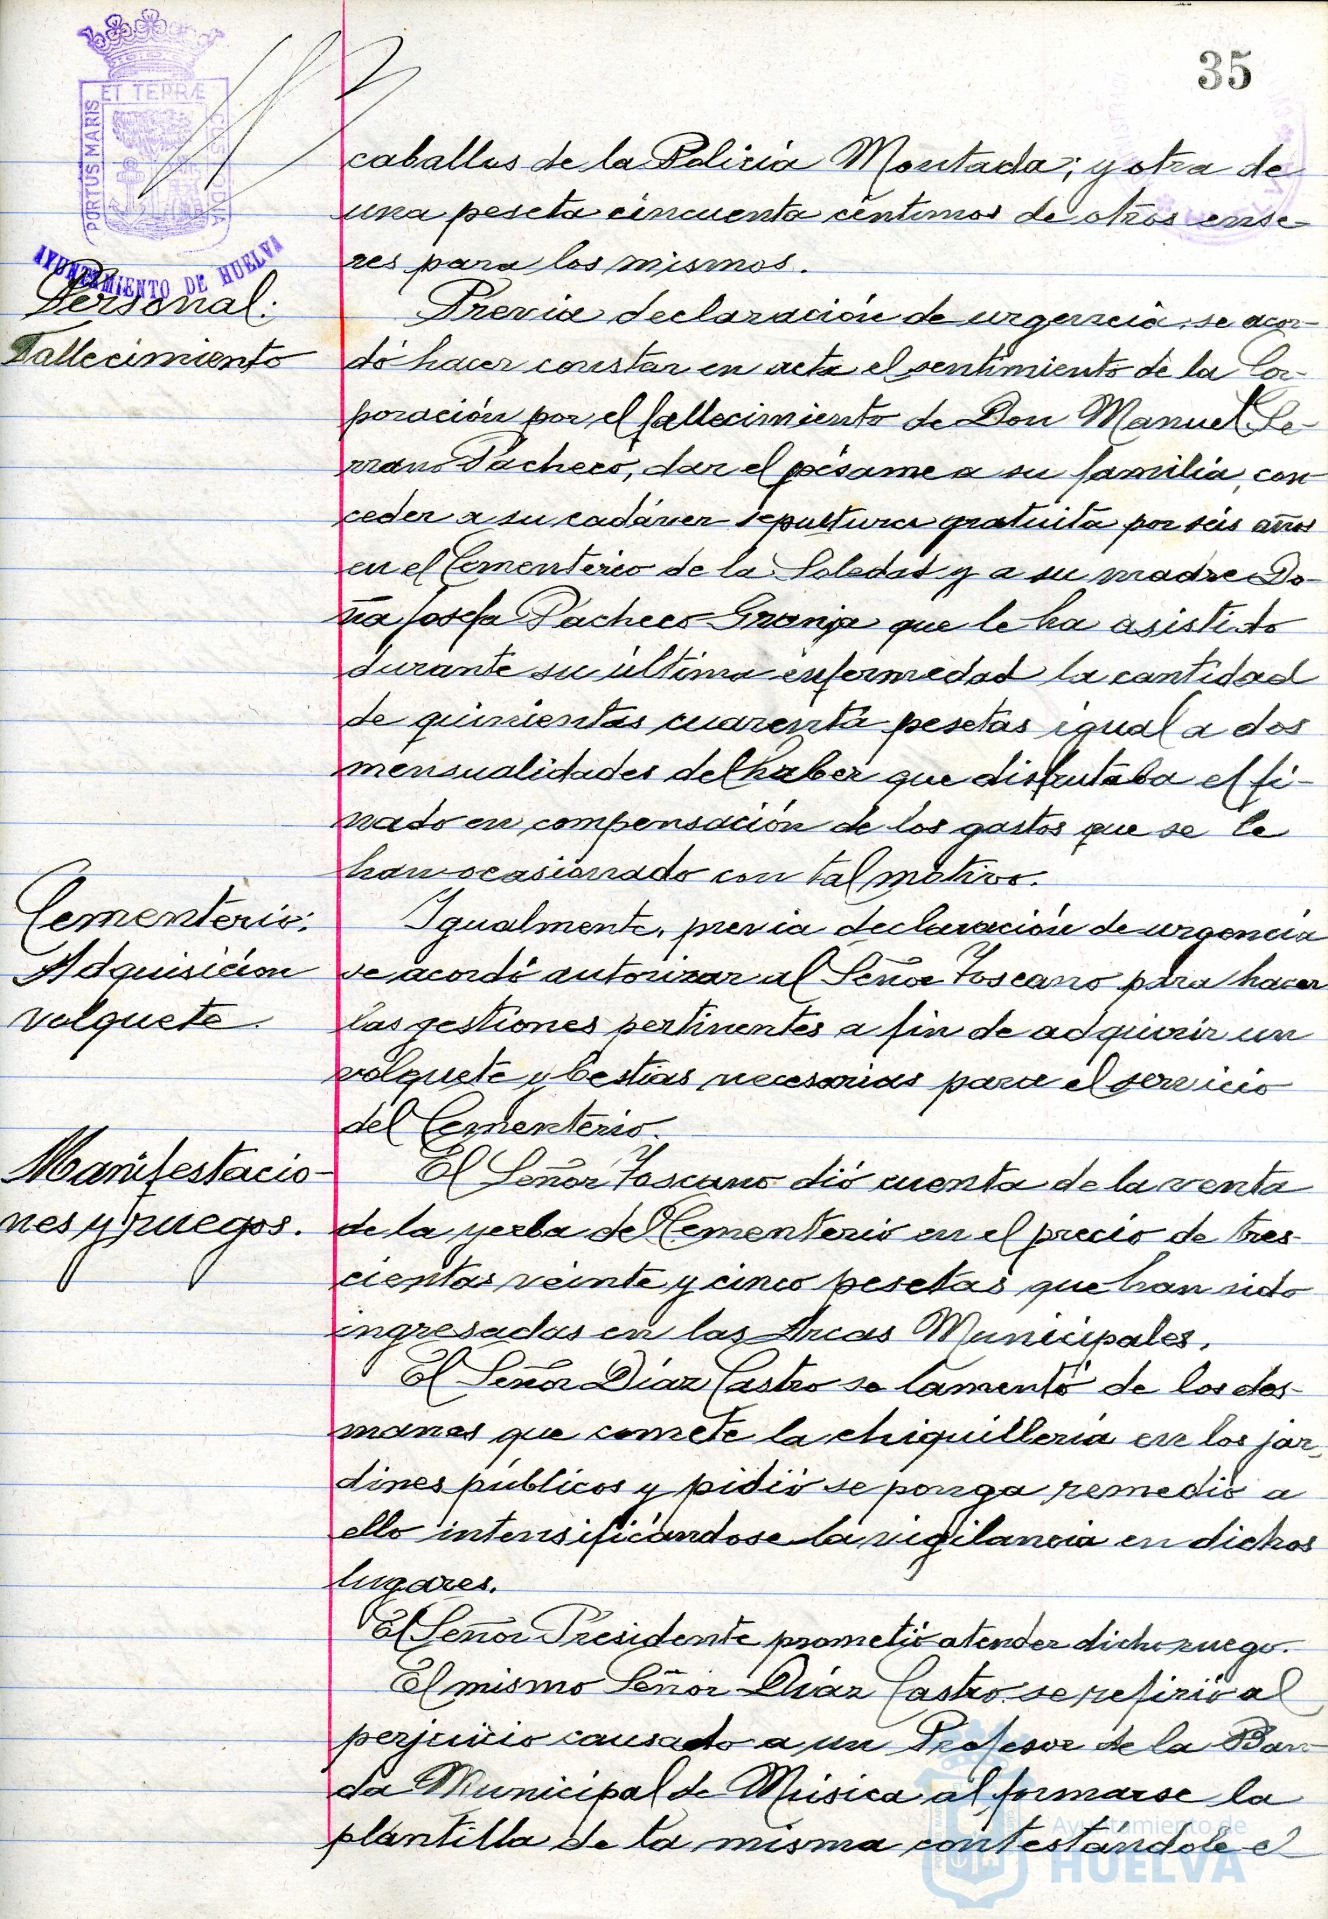 35
ET TERRÆ
PORTUS MARIS
CUSTODIA
AYUNTAMIENTO DE HUELVA
caballos de la Policía Montada; y otra de
una peseta cincuenta céntimos de otros ense-
res para los mismos.
Personal:
Fallecimiento
Previa declaración de urgencia, se acor-
dó hacer constar en acta el sentimiento de la Cor-
poración por el fallecimiento de Don Manuel Se-
rrano Pacheco, dar el pésame a su familia, con
ceder a su cadáver sepultura gratuita por seis años
en el Cementerio de la Soledad y a su madre Do-
ña Josefa Pacheco Granja que le ha asistido
durante su última enfermedad la cantidad
de quinientas cuarenta pesetas igual a dos
mensualidades del haber que disfrutaba el fi-
nado en compensación de los gastos que se le
han ocasionado con tal motivo.
Cementerio:
Adquisición
volquete.
Igualmente, previa declaración de urgencia
se acordó autorizar al Señor Toscano para hacer
las gestiones pertinentes a fin de adquirir un
volquete y bestias necesarias para el servicio
del Cementerio.
Manifestacio-
nes y ruegos.
El Señor Toscano dió cuenta de la venta
de la yerba del Cementerio en el precio de tres-
cientas veinte y cinco pesetas que han sido
ingresadas en las Arcas Municipales.
El Señor Díaz Castro se lamentó de los des-
manes que comete la chiquillería en los jar-
dines públicos y pidió se ponga remedio a
ello intensificándose la vigilancia en dichos
lugares.
El Señor Presidente prometió atender dicho ruego.
El mismo Señor Díaz Castro se refirió al
perjuicio causado a un Profesor de la Ban-
da Municipal de Música al formarse la
plantilla de la misma contestándole el
Ayuntamiento de
HUELVA